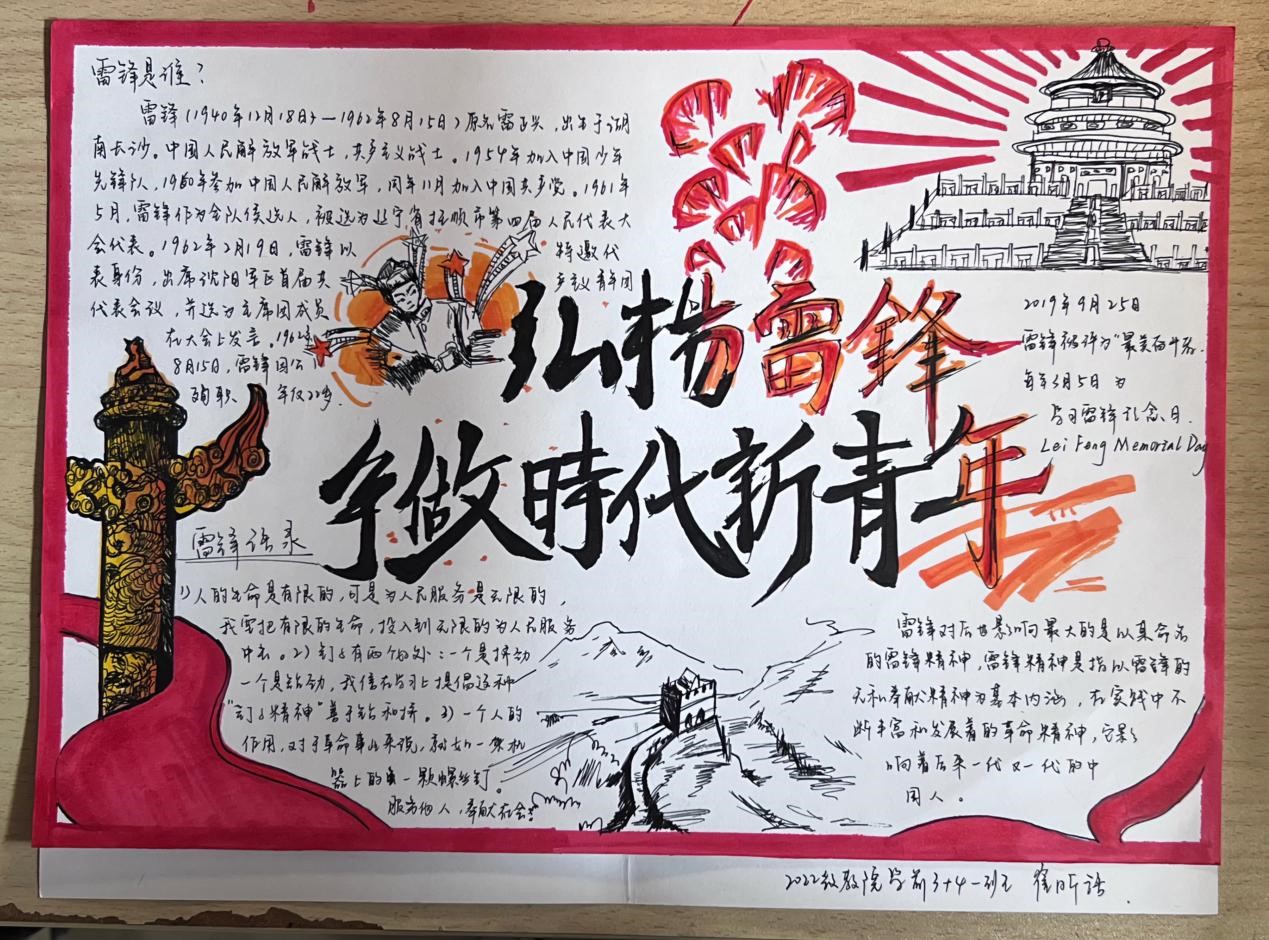 雷锋是谁？
雷锋（1940年12月18日—1962年8月15日）原名雷正兴，出生于湖
南长沙。中国人民解放军战士，共产主义战士。1954年加入中国少年
先锋队，1960年参加中国人民解放军，同年11月加入中国共产党。1961年
5月，雷锋作为全队候选人，被选为辽宁省抚顺市第四届人民代表大
会代表。1962年2月19日，雷锋以特邀代
表身份，出席沈阳军区首届共产主义青年团
代表会议，并选为主席团成员
在大会上发言。1962年
8月15日，雷锋因公
殉职，年仅22岁.
弘扬雷锋
争做時代新青年
2019年9月25日
雷锋被评为"最美奋斗者.
每年3月5日为
学习雷锋纪念日.
Lei Feng Memorial Day
雷锋语录
1)人的生命是有限的,可是为人民服务是无限的,
我要把有限的生命,投入到无限的为人民服务
中去。2)钉子有两个好处:一个是挤劲
一个是钻劲,我们在学习上提倡这种
"钉子精神"善于钻和挤。3)一个人的
作用,对于革命事业来说,就如一架机
器上的一颗螺丝钉。
服务他人,奉献社会!
雷锋对后世影响最大的是以其命名
的雷锋精神,雷锋精神是指以雷锋的
无私奉献精神为基本内涵,在实践中不
断丰富和发展着的革命精神,它影
响着后来一代又一代的中
国人。
2022级教院学前3+4一班